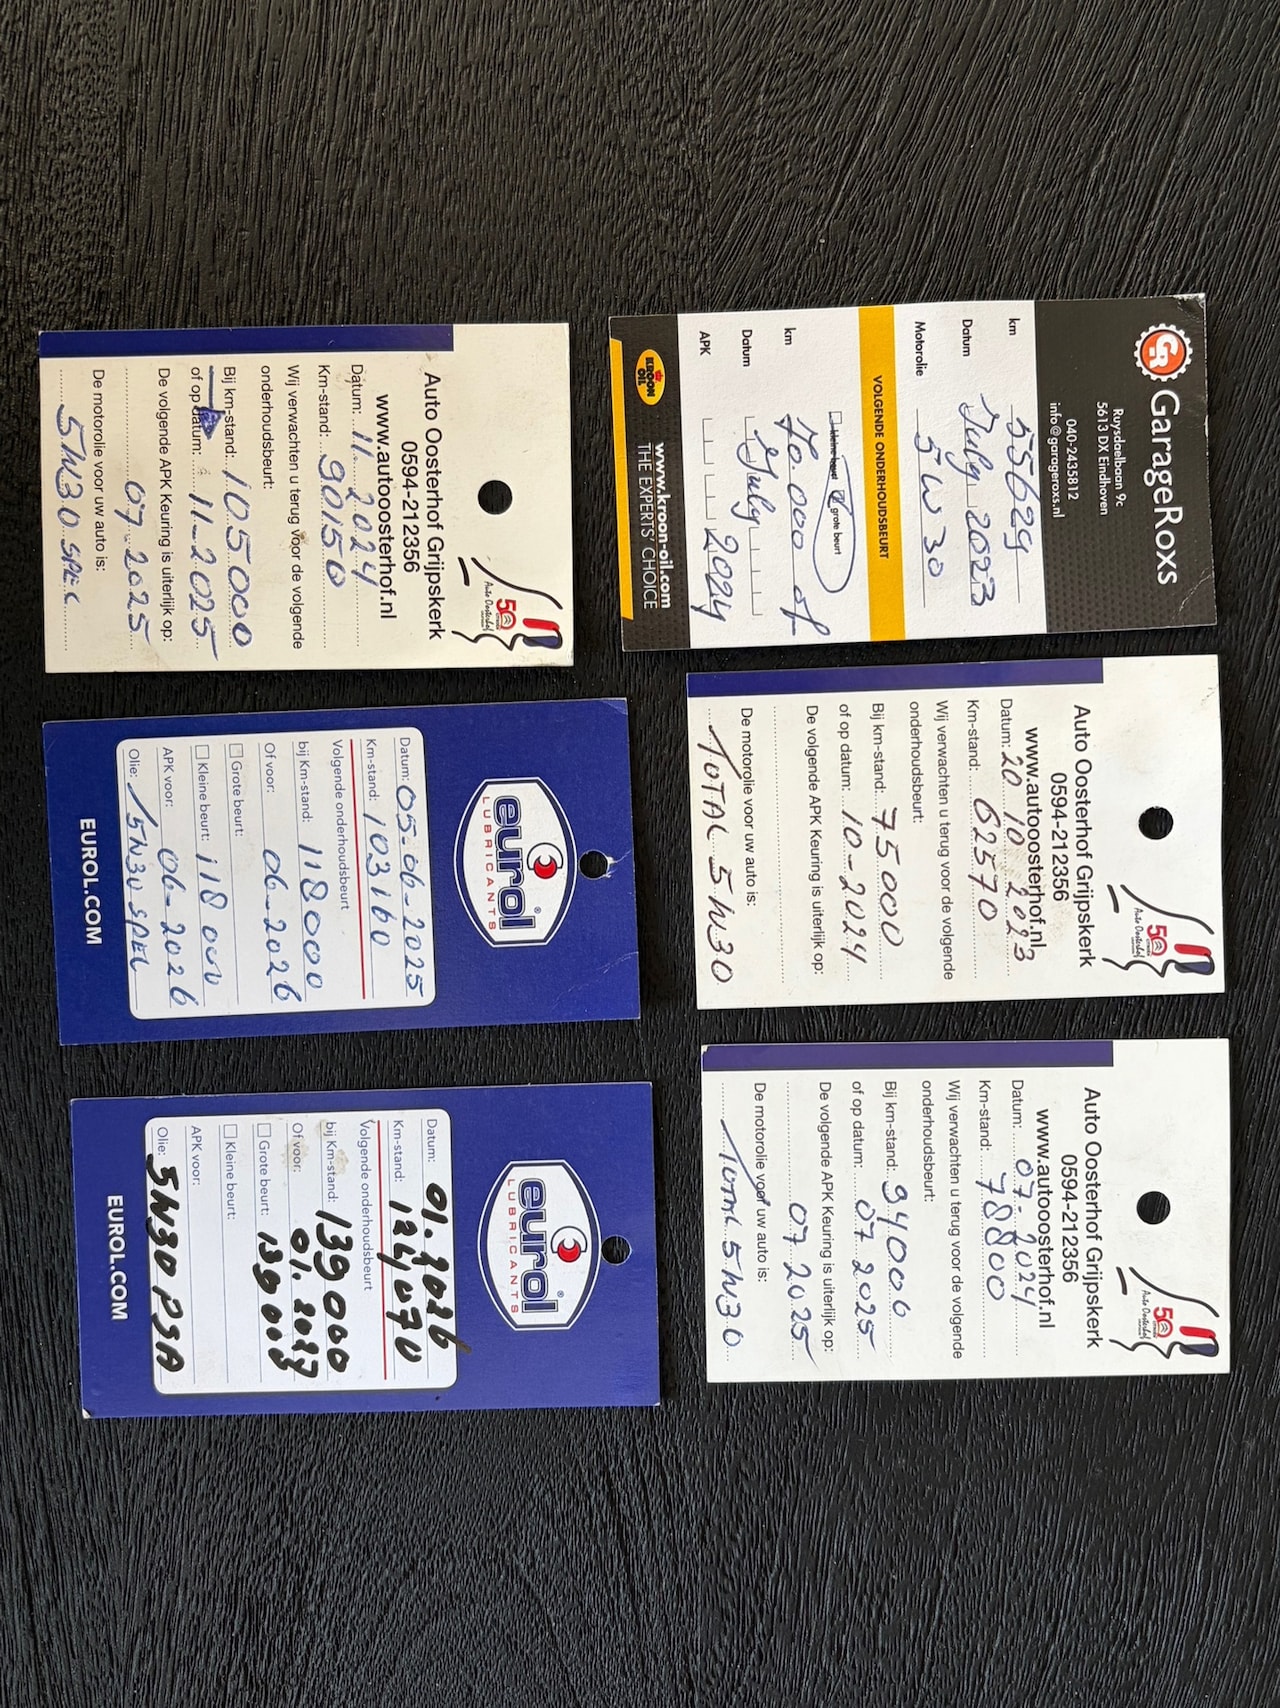 GR GarageRoxs
Ruysdaelbaan 9c
5613 DX Eindhoven
040-2435812
info@garageroxs.nl
km 55629
Datum July 2023
Motorolie 5W30
VOLGENDE ONDERHOUDSBEURT
kleine beurt grote beurt
km 70.000 of
Datum July
APK 2024
KROON OIL
www.kroon-oil.com
THE EXPERTS' CHOICE
50
Auto Oosterhof
Auto Oosterhof Grijpskerk
0594-212356
www.autooosterhof.nl
Datum: 20 10 2023
Km-stand: 62570
Wij verwachten u terug voor de volgende
onderhoudsbeurt:
Bij km-stand: 75000
of op datum: 10-2024
De volgende APK Keuring is uiterlijk op:
De motorolie voor uw auto is:
TOTAL 5W30
50
Auto Oosterhof
Auto Oosterhof Grijpskerk
0594-212356
www.autooosterhof.nl
Datum: 07. 2024
Km-stand: 78800
Wij verwachten u terug voor de volgende
onderhoudsbeurt:
Bij km-stand: 94000
of op datum: 07 2025
De volgende APK Keuring is uiterlijk op:
07 2025
De motorolie voor uw auto is:
TOTAL 5W30
50
Auto Oosterhof
Auto Oosterhof Grijpskerk
0594-212356
www.autooosterhof.nl
Datum: 11 2024
Km-stand: 90150
Wij verwachten u terug voor de volgende
onderhoudsbeurt:
Bij km-stand: 105000
of op datum: 11-2025
De volgende APK Keuring is uiterlijk op:
07 2025
De motorolie voor uw auto is:
5W30 SPEC
eurol®
LUBRICANTS
Datum: 05-06-2025
Km-stand: 103160
Volgende onderhoudsbeurt
bij Km-stand: 118000
Of voor: 06-2026
Grote beurt:
Kleine beurt: 118 000
APK voor: 06-2026
Olie: 5W30 SPEC
EUROL.COM
eurol®
LUBRICANTS
Datum: 01.2026
Km-stand: 124070
Volgende onderhoudsbeurt
bij Km-stand: 139000
Of voor: 01.2027
Grote beurt: 139000
Kleine beurt:
APK voor:
Olie: 5W30 PSA
EUROL.COM